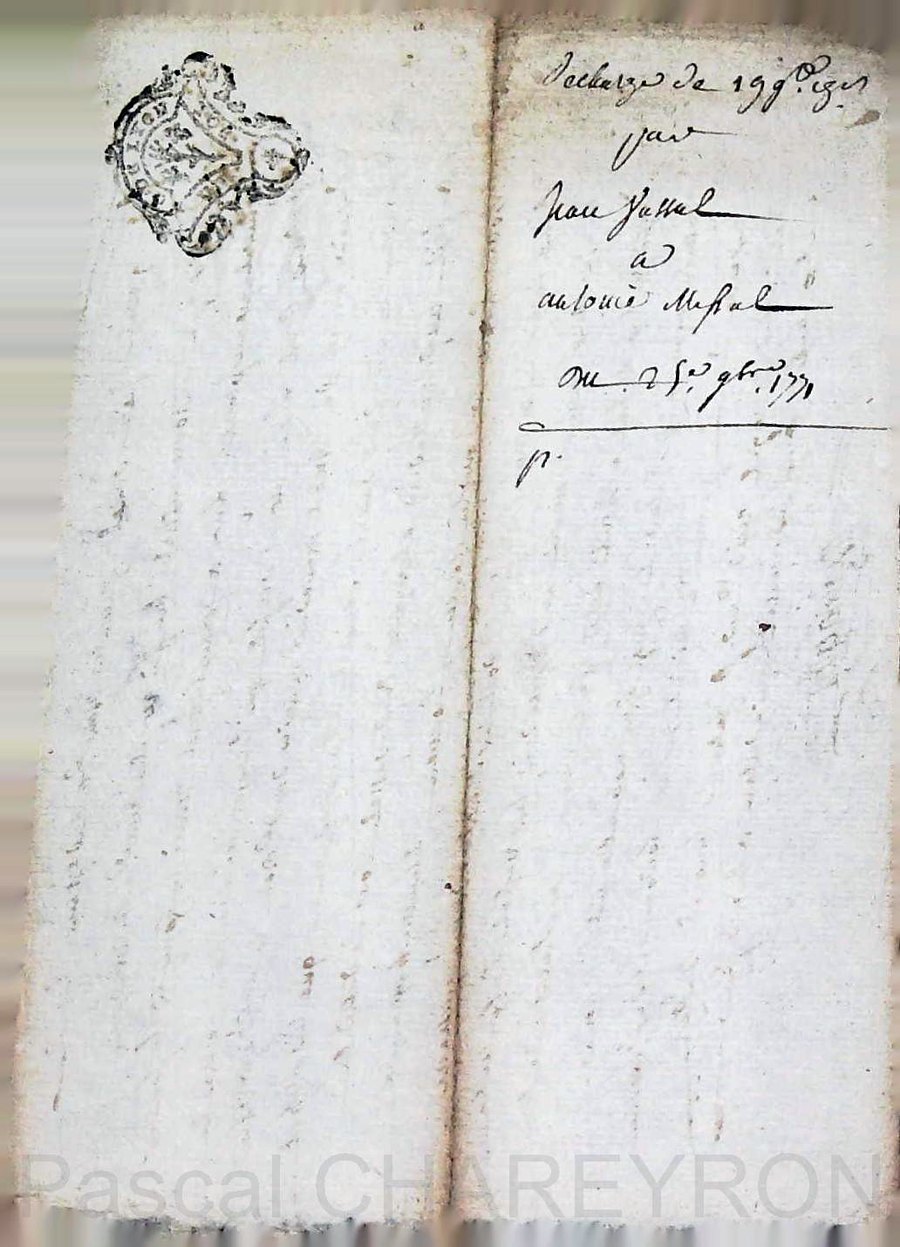 decharge de 199#
par
Jean Vassal
a
antoine Mestal
du 25e. 9bre. 1771
pr.
Pascal CHAREYRON